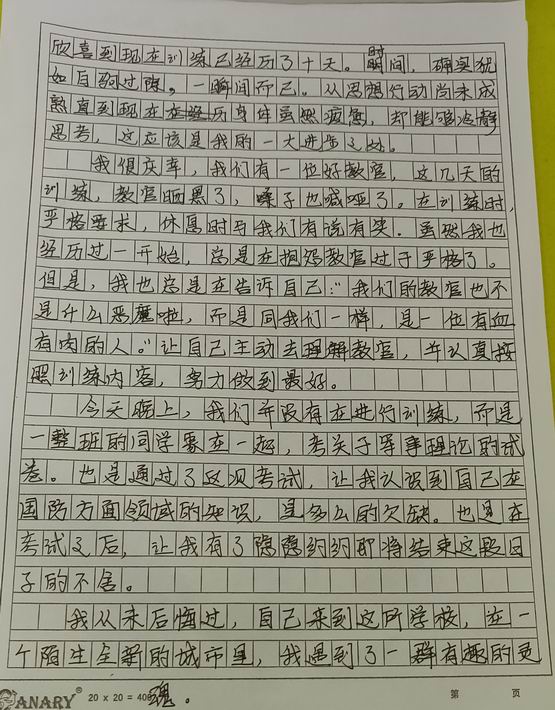 欣喜到现在训练已经历了十天。时间，确实犹
如白驹过隙，一瞬间而已。从思想行动尚未成
熟直到现在在经历身体虽然疲惫，却能强冷静
思考，这应该是我的一大进步之处。
我很庆幸，我们有一位好教官，这几天的
训练，教官晒黑了，嗓子也喊哑了。在训练时，
严格要求，休息时与我们有说有笑。虽然我也
经历过一开始，总是在抱怨教官过于严格了。
但是，我也总是在告诉自己："我们的教官也不
是什么恶魔啦，而是同我们一样，是一位有血
有肉的人。"让自己主动去理解教官，并认真按
照训练内容，努力做到最好。
今天晚上，我们并没有在进行训练，而是
一整班的同学聚在一起，考关于军事理论的试
卷。也是通过了这次考试，让我认识到自己在
国防方面领域的知识，是多么的欠缺。也是在
考试之后，让我有了隐隐约约即将结束这段日
子的不舍。
我从未后悔过，自己来到这所学校，在一
个陌生全新的城市里，我遇到了一群有趣的灵
魂。
CANARY® 20 x 20 = 400
第 页